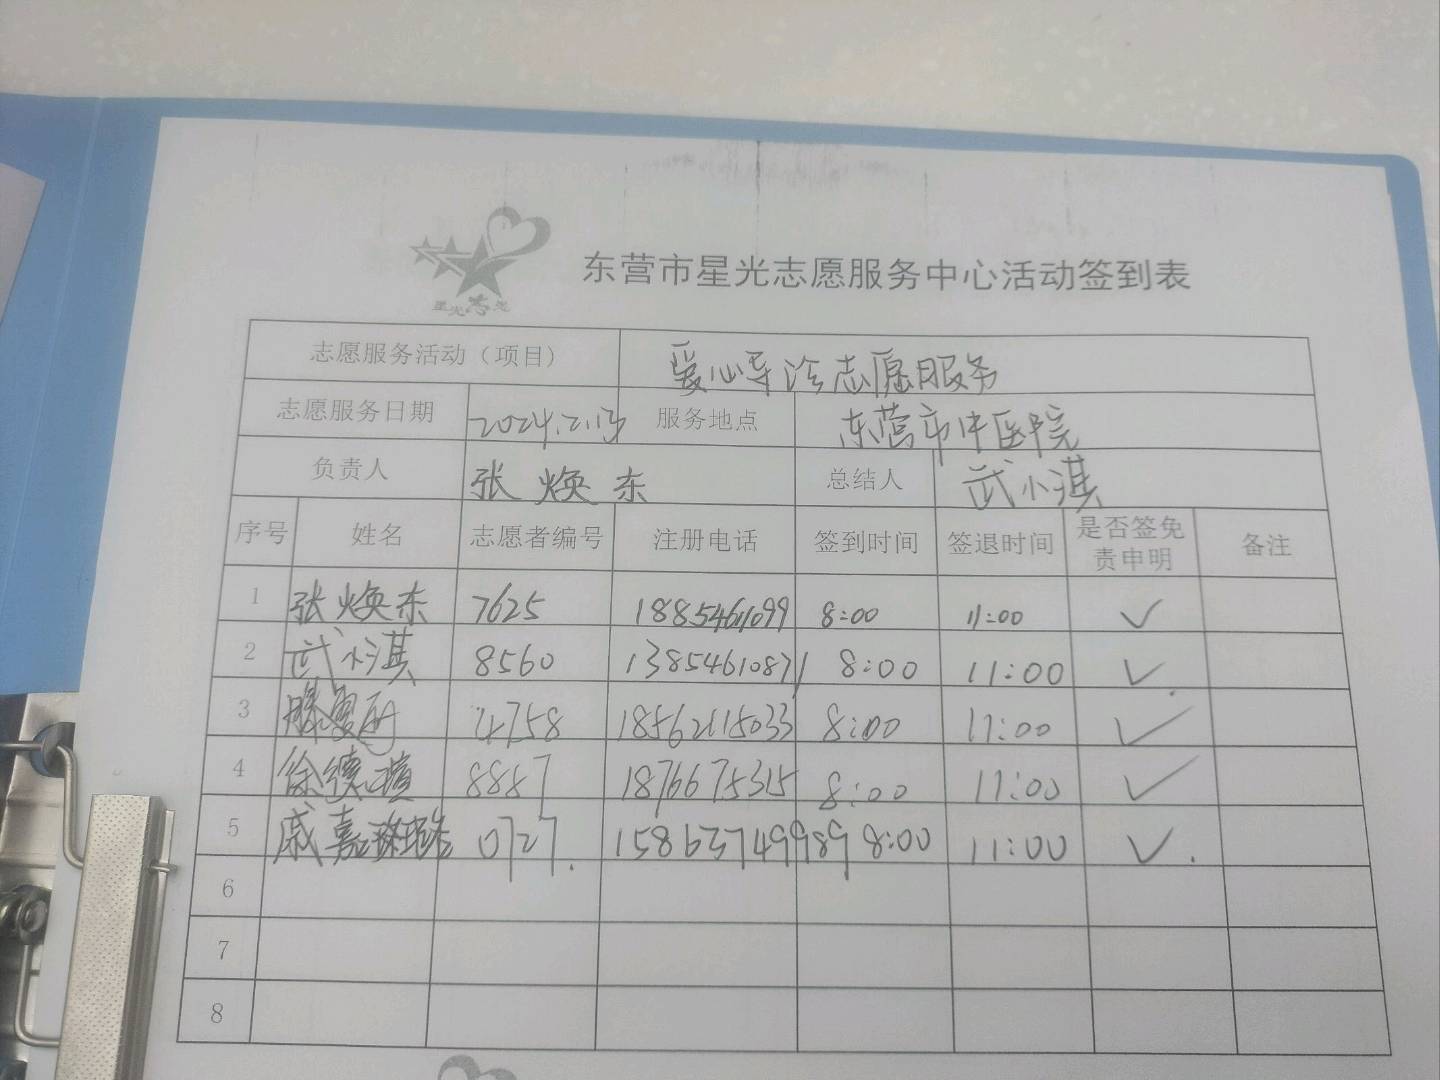 星光志愿
东营市星光志愿服务中心活动签到表
志愿服务活动（项目） 爱心导诊志愿服务
志愿服务日期 2024.2.13 服务地点 东营市中医院
负责人 张焕东 总结人 武小淇
序号 姓名 志愿者编号 注册电话 签到时间 签退时间 是否签免责申明 备注
1 张焕东 7625 18854611099 8:00 11:00 ✓
2 武小淇 8560 13854610871 8:00 11:00 ✓
3 滕 4758 18562115033 8:00 11:00 ✓
4 徐德瑄 8887 1876675315 8:00 11:00 ✓
5 戚嘉 0727. 15863749989 8:00 11:00 ✓.
6
7
8